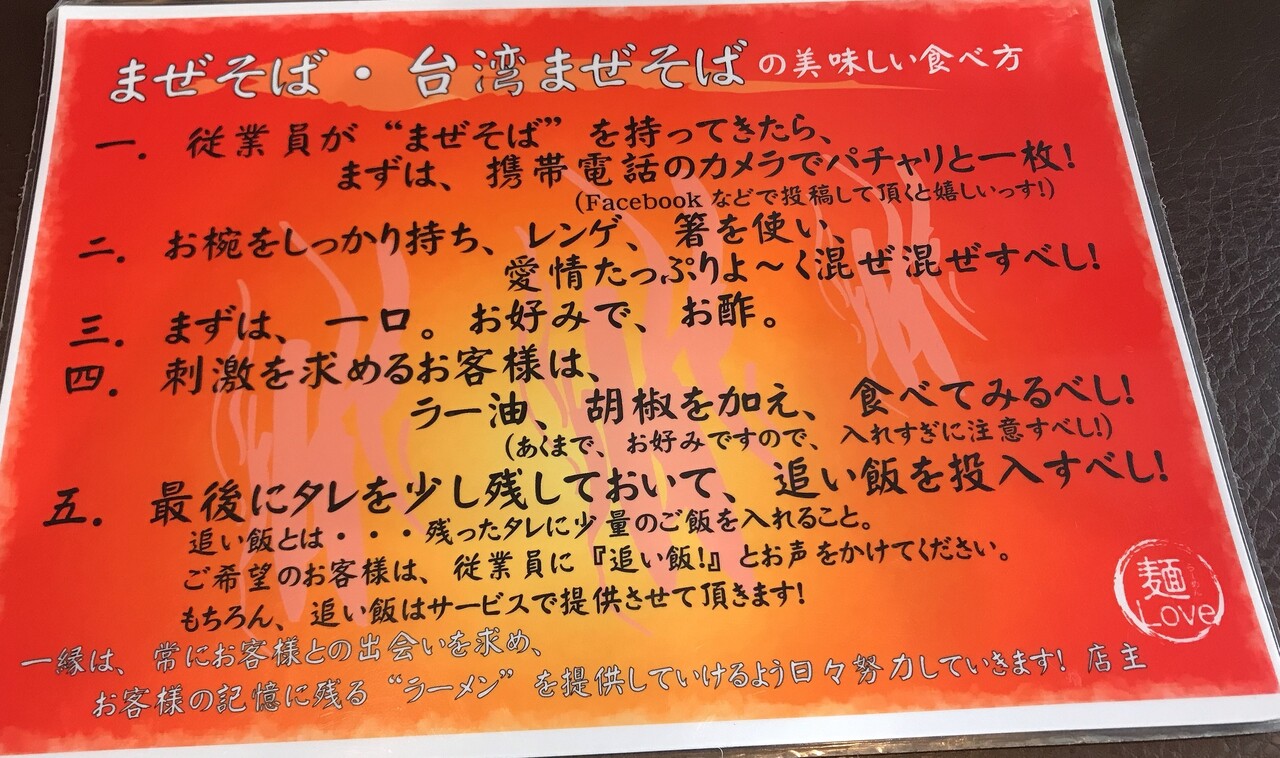 まぜそば・台湾まぜそばの美味しい食べ方
一．従業員が“まぜそば”を持ってきたら、
まずは、携帯電話のカメラでパチャリと一枚！
（Facebookなどで投稿して頂くと嬉しいっす！）
二．お椀をしっかり持ち、レンゲ、箸を使い、
愛情たっぷりよ～く混ぜ混ぜすべし！
三．まずは、一口。お好みで、お酢。
四．刺激を求めるお客様は、
ラー油、胡椒を加え、食べてみるべし！
（あくまで、お好みですので、入れすぎに注意すべし！）
五．最後にタレを少し残しておいて、追い飯を投入すべし！
追い飯とは・・・残ったタレに少量のご飯を入れること。
ご希望のお客様は、従業員に『追い飯！』とお声をかけてください。
もちろん、追い飯はサービスで提供させて頂きます！
麺
Love
一縁は、常にお客様との出会いを求め、
お客様の記憶に残る“ラーメン”を提供していけるよう日々努力していきます！店主